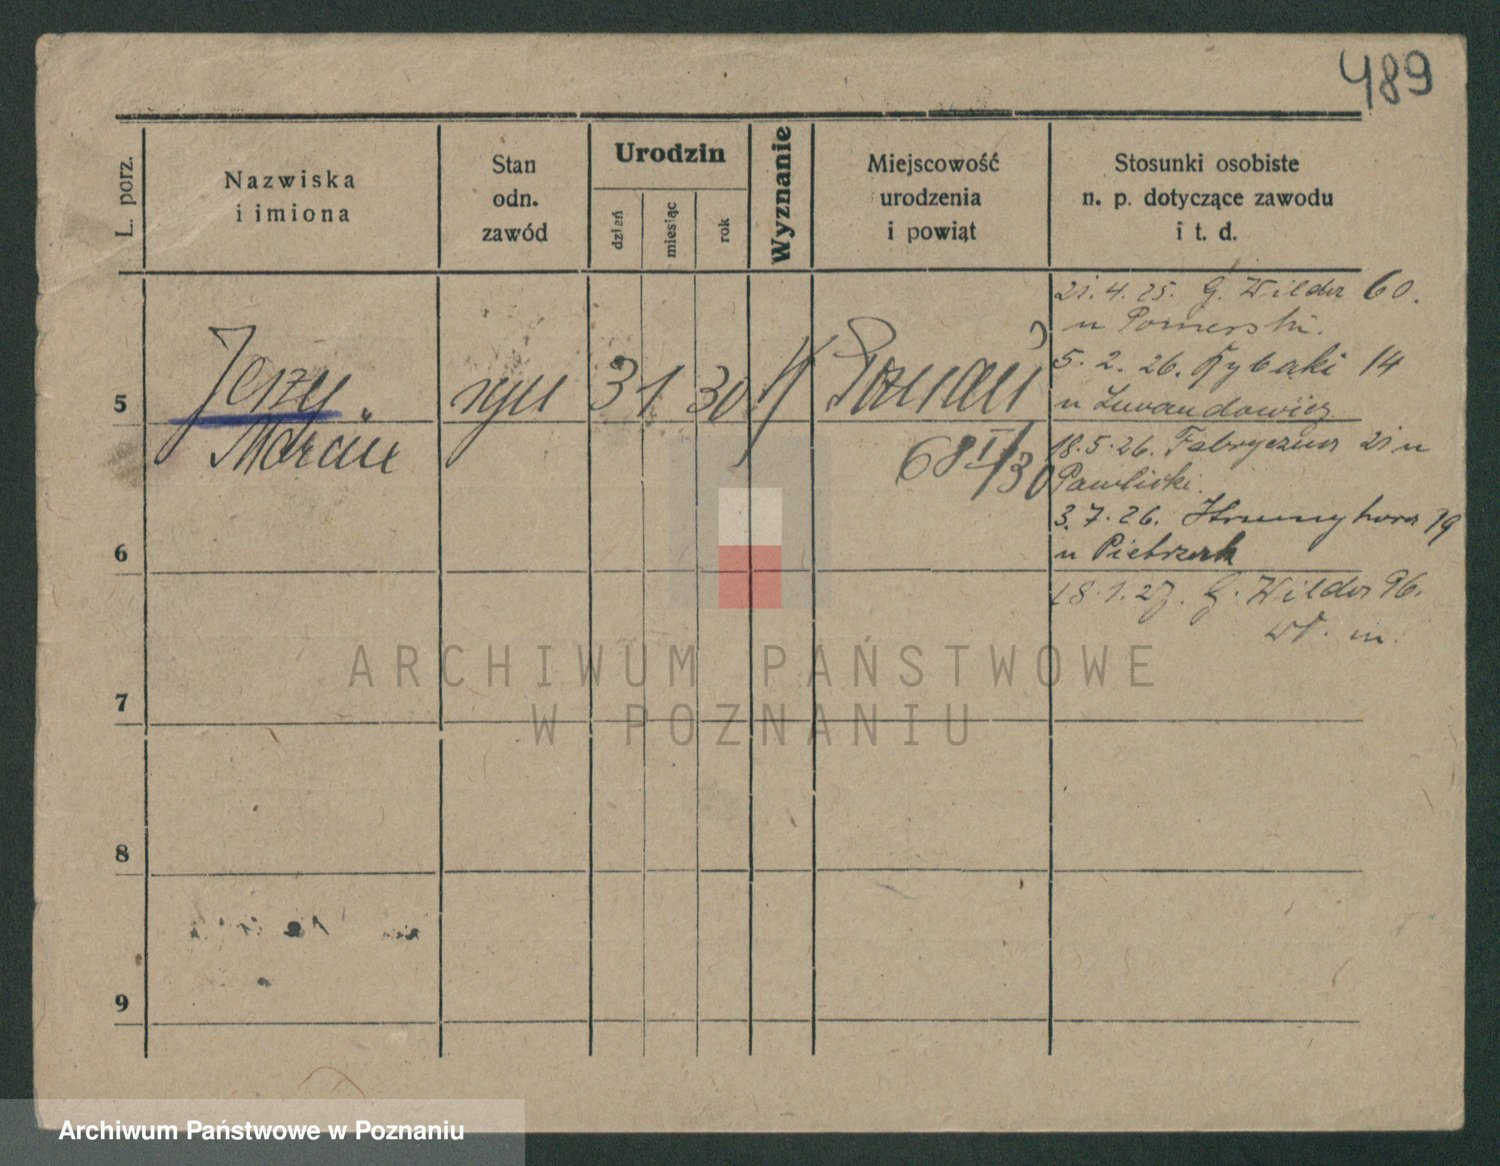 489
L. porz.
Nazwiska
i imiona
Stan
odn.
zawód
Urodzin
dzień
miesiąc
rok
Wyznanie
Miejscowość
urodzenia
i powiąt
Stosunki osobiste
n. p. dotyczące zawodu
i t. d.
21.4.25. G. Wilda 60.
u Pomerski.
5.2.26. Rybaki 14
u
5
Jerzy
Marcin
syn
31
30
Poznań
68 II/30
18.5.26. Fabryczna 21 u
Pawlicki.
3.7.26. 19
u Pietrzak
6
18.1.27. G. Wilda 96.
wł. m.
7
8
9
ARCHIWUM PAŃSTWOWE
W POZNANIU
Archiwum Państwowe w Poznaniu